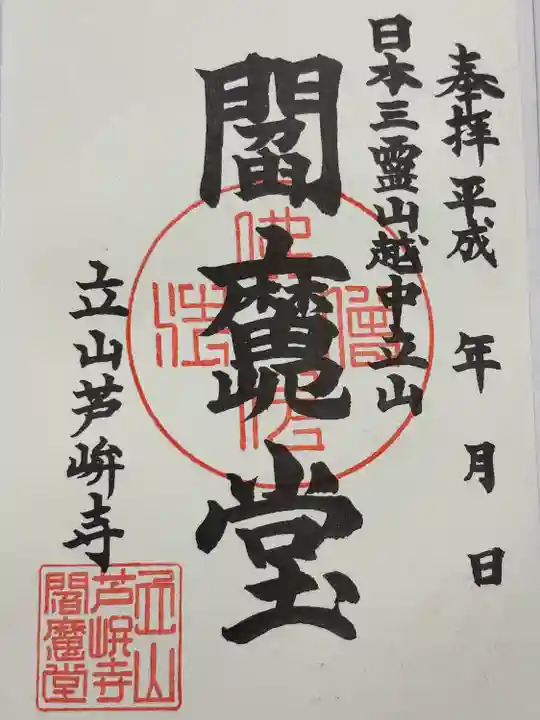 奉拝 平成 年 月 日
日本三霊山越中立山
閻魔堂
立山芦峅寺
佛法僧
立山
芦峅寺
閻魔堂